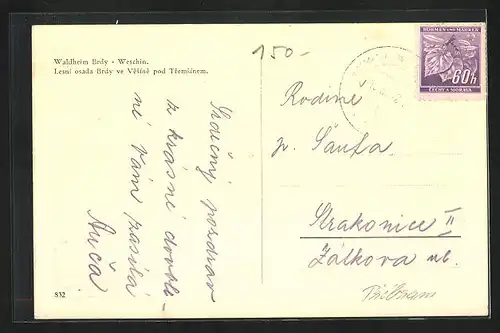 Waldheim Brdy - Weschin.
Lesní osada Brdy ve Věšíně pod Třemšínem.
150-
BÖHMEN UND MÄHREN
60h
ČECHY A MORAVA
Srdečný pozdrav
z krásné dovole-
né Vám posílá
Anča
Rodině
p. Šanta
Strakonice II
Žižkova ul.
Příbram
832